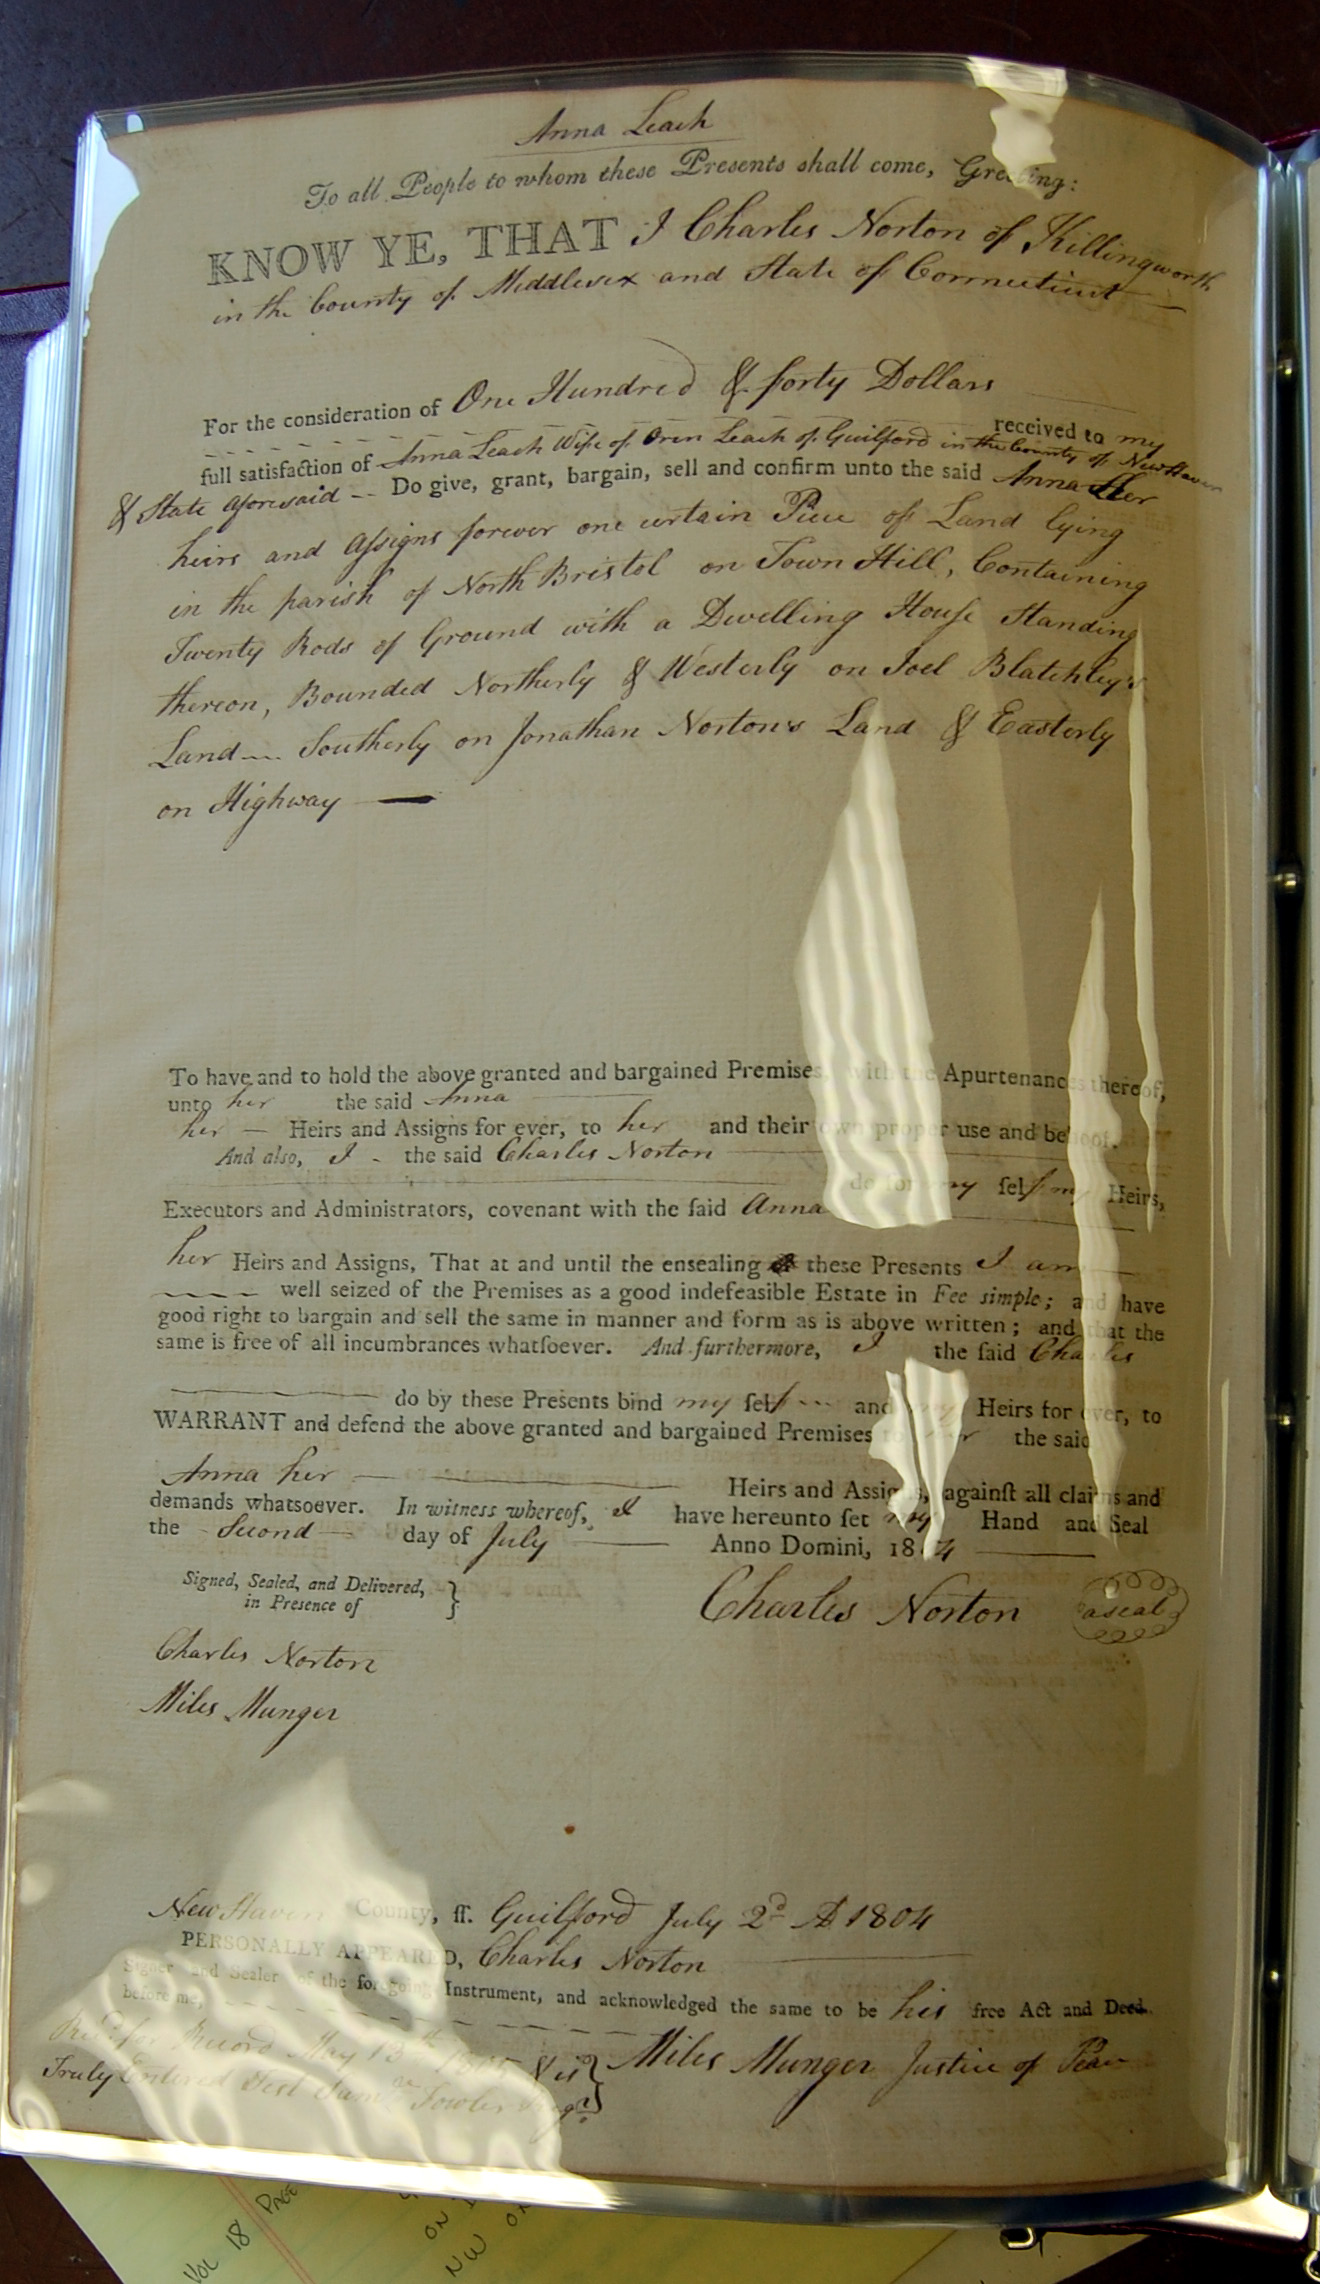 Anna Leach
To all People to whom these Presents shall come, Greeting:
KNOW YE, THAT I Charles Norton of Killingworth
in the County of Middlesex and State of Connecticut
For the consideration of One Hundred & forty Dollars
received to my
full satisfaction of Anna Leach Wife of Oren Leach of Guilford in the County of New Haven
& State aforesaid -- Do give, grant, bargain, sell and confirm unto the said Anna Her
heirs and Assigns forever one certain Piece of Land lying
in the parish of North Bristol on Town Hill, Containing
Twenty Rods of Ground with a Dwelling House Standing
thereon, Bounded Northerly & Westerly on Joel Blatchley's
Land --- Southerly on Jonathan Norton's Land & Easterly
on Highway —
To have and to hold the above granted and bargained Premises, with the Apurtenances thereof,
unto her the said Anna
her — Heirs and Assigns for ever, to her and their own proper use and behoof.
And also, I - the said Charles Norton
do for my self my Heirs,
Executors and Administrators, covenant with the said Anna
her Heirs and Assigns, That at and until the ensealing these Presents I am
well seized of the Premises as a good indefeasible Estate in Fee simple; and have
good right to bargain and sell the same in manner and form as is above written; and that the
same is free of all incumbrances whatsoever. And furthermore, I the said Charles
do by these Presents bind my self --- and my Heirs for ever, to
WARRANT and defend the above granted and bargained Premises to her the said
Anna her — Heirs and Assigns, against all claims and
demands whatsoever. In witness whereof, I have hereunto set my Hand and Seal
the - Second — day of July — Anno Domini, 1804
Signed, Sealed, and Delivered, }
in Presence of
Charles Norton aseal
Charles Norton
Miles Munger
New Haven County, ss. Guilford July 2d AD 1804
PERSONALLY APPEARED, Charles Norton
Signer and Sealer of the foregoing Instrument, and acknowledged the same to be his free Act and Deed.
before me,
Miles Munger Justice of Peace
Recd for Record May 13th 1805 & is }
Truly Entered Test Saml Fowler Regr
VOL 18 PAGE
ON
NW